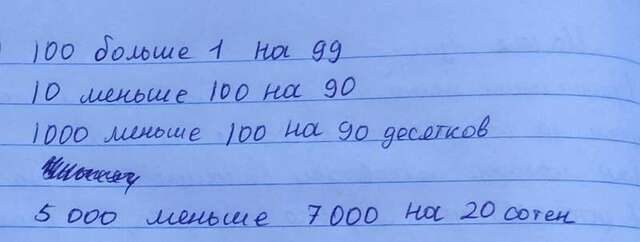 100 больше 1 на 99
10 меньше 100 на 90
1000 меньше 100 на 90 десятков
5 000 меньше 7000 на 20 сотен